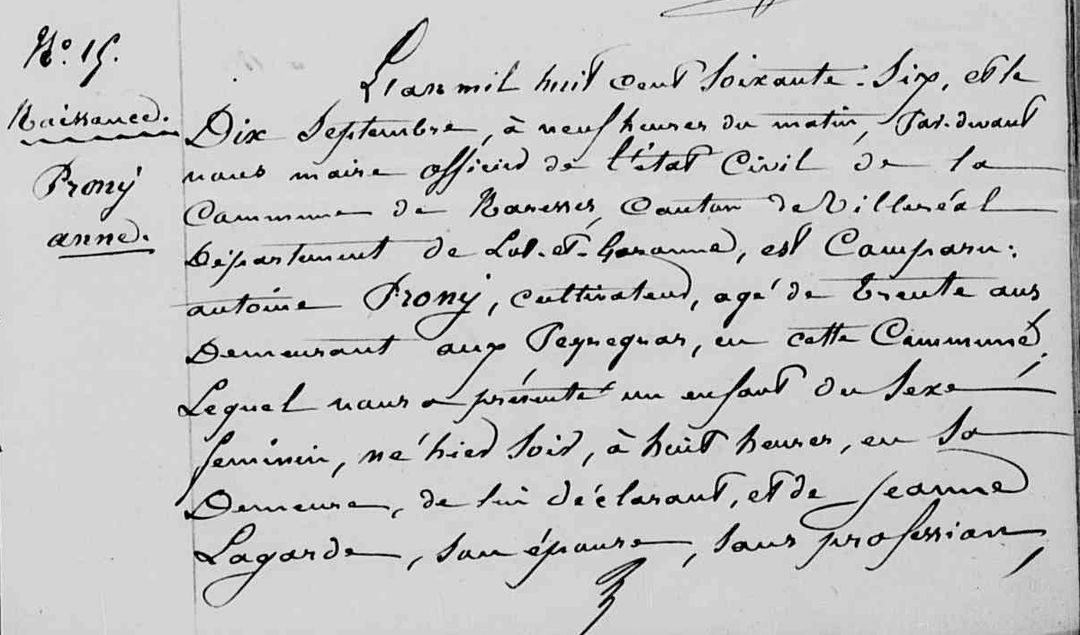 N.º 15.
Naissance.
Prony
anne.
L'an mil huit cent soixante-six, et le
Dix Septembre, à neuf heures du matin, Par-devant
nous maire officier de l'état Civil de la
Commune de Naresses, Canton de Villeréal
Département de Lot-et-Garonne, est Comparu:
antoine Prony, cultivateur, agé de trente ans
Demeurant aux Peyregnas, en cette Commune,
Lequel nous a présenté un enfant du Sexe
féminin, né hier soir, à huit heures, en sa
Demeure, de lui déclarant, et de Jeanne
Lagarde, son épouse, sans profession,